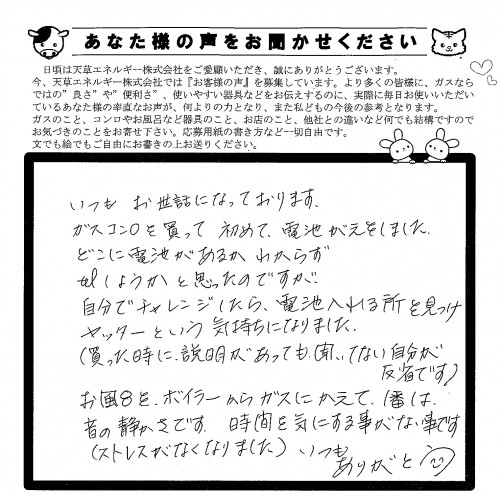 あなた様の声をお聞かせください
日頃は天草エネルギー株式会社をご愛顧いただき、誠にありがとうございます。
今、天草エネルギー株式会社では『お客様の声』を募集しています。より多くの皆様に、ガスなら
ではの”良さ”や”便利さ”、使いやすい器具などをお伝えするのに、実際に毎日お使いいただい
ているあなた様の率直なお声が、何よりの力となり、また私どもの今後の参考となります。
ガスのこと、コンロやお風呂など器具のこと、お店のこと、他社との違いなど何でも結構ですので
お気づきのことをお寄せ下さい。応募用紙の書き方など一切自由です。
文でも絵でもご自由にお書きの上お送りください。
いつも お世話になっております。
ガスコンロを買って 初めて、電池がえをしました。
どこに電池があるか わからず
telしようかと思ったのですが
自分でチャレンジしたら、電池入れる所を見つけ
ヤッターという 気持ちになりました。
(買った時に、説明があっても、聞いてない自分が
反省です)
お風呂を、ボイラーからガスにかえて、1番は、
音の静かさです。 時間を気にする事がない事です
(ストレスがなくなりました) いつも
ありがと